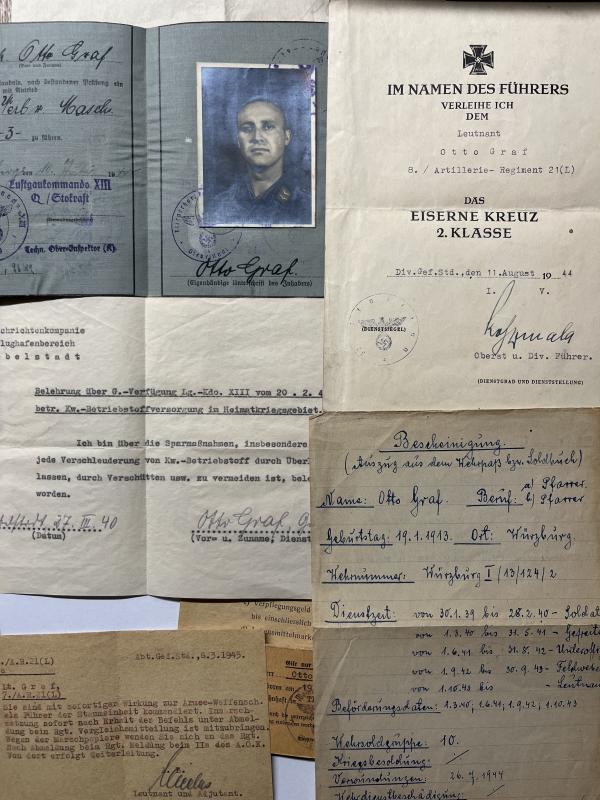 Otto Graf
(Vor- und Zuname)
nach bestandener Prüfung ein
mit Antrieb
Verb. v. Masch.
-3-
zu führen.
Luftgaukommando XIII
Q/Stokraft
Techn. Ober-Inspektor (K)
Otto Graf.
(Eigenhändige Unterschrift des Inhabers)
IM NAMEN DES FÜHRERS
VERLEIHE ICH
DEM
Leutnant
Otto Graf
8. / Artillerie- Regiment 21(L)
DAS
EISERNE KREUZ
2. KLASSE
Div.Gef.Std., den 11.August 19 44
I. V.
(DIENSTSIEGEL)
Oberst u. Div. Führer.
(DIENSTGRAD UND DIENSTSTELLUNG)
chrichtenkompanie
lughafenbereich
belstadt
Belehrung über G.-Verfügung Lg.-Kdo. XIII vom 20 . 2. 4
betr. Kw.-Betriebstoffversorgung im Heimatkriegsgebiet.
Ich bin über die Sparmaßnahmen, insbesondere
jede Verschleuderung von Kw.-Betriebstoff durch Über
lassen, durch Verschütten usw. zu vermeiden ist, bele
worden.
27. III. 40 Otto Graf,
(Datum) (Vor= u. Zuname, Dienst
Bescheinigung.
(Auszug aus dem Wehrpaß bzw. Soldbuch)
Name: Otto Graf. Beruf: a) Pfarrer
b) Pfarrer
Geburtstag: 19.1.1913. Ort: Würzburg.
Wehrnummer: Würzburg I /13/124/2
Dienstzeit: von 30.1.39 bis 28.2.40 - Soldat
von 1.3.40 bis 31.5.41 - Gefreite
von 1.6.41 bis 31.8.42 - Unteroffi
von 1.9.42 bis 30.9.43 - Feldwebe
von 1.10.43 bis Leutnan
Beförderungsdaten: 1.3.40, 1.6.41, 1.9.42, 1.10.43
Wehrsoldgruppe: 10.
Kriegsbesoldung: /
Verwundungen: 26.7.1944
Wehrdienstbeschädigung: /
) Verpflegungsgeld
bis einschließlich
smittelmark
Otto
./A.R.21(L) Abt.Gef.Std.,8.3.1945.
Lt. Graf,
7./A.R.21(L)
Sie sind mit sofortiger Wirkung zur Armee-Waffensch.
als Führer der Stammeinheit kommandiert.
setzung sofort nach Erhalt des Befehls unter Abmel
dung beim Rgt. Vergleichsmitteilung ist mitzubringen.
Wegen der Marschpapiere wenden Sie sich an das Rgt.
Nach Abmeldung beim Rgt. Meldung beim IIa des A.O.K.
Von dort erfolgt Weiterleitung.
Leutnant und Adjutant.